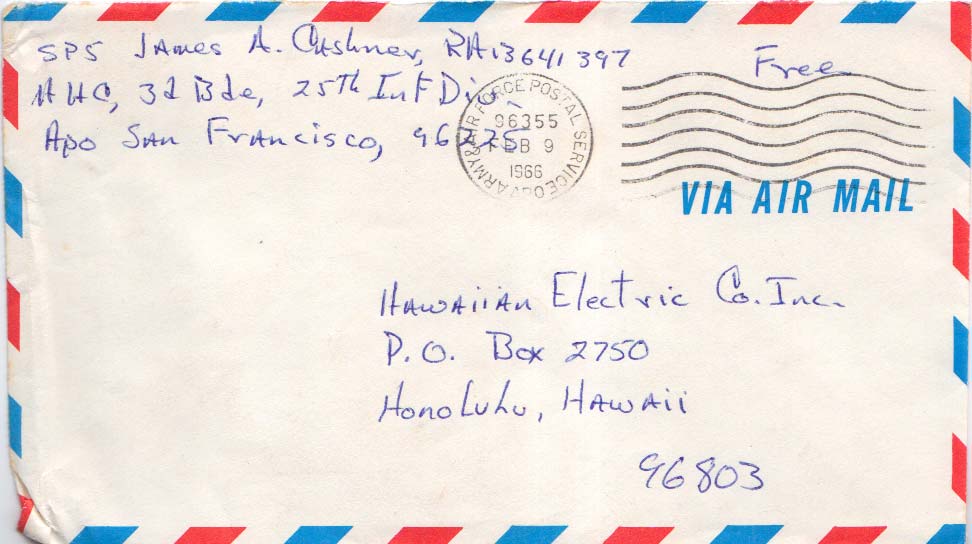 SP5 James A. Cushner, RA13641397
HHC, 3d Bde, 25th Inf Div
Apo San Francisco, 96225
Free
ARMY & AIR FORCE POSTAL SERVICE
96355
FEB 9
1966
VIA AIR MAIL
Hawaiian Electric Co. Inc.
P.O. Box 2750
Honolulu, Hawaii
96803